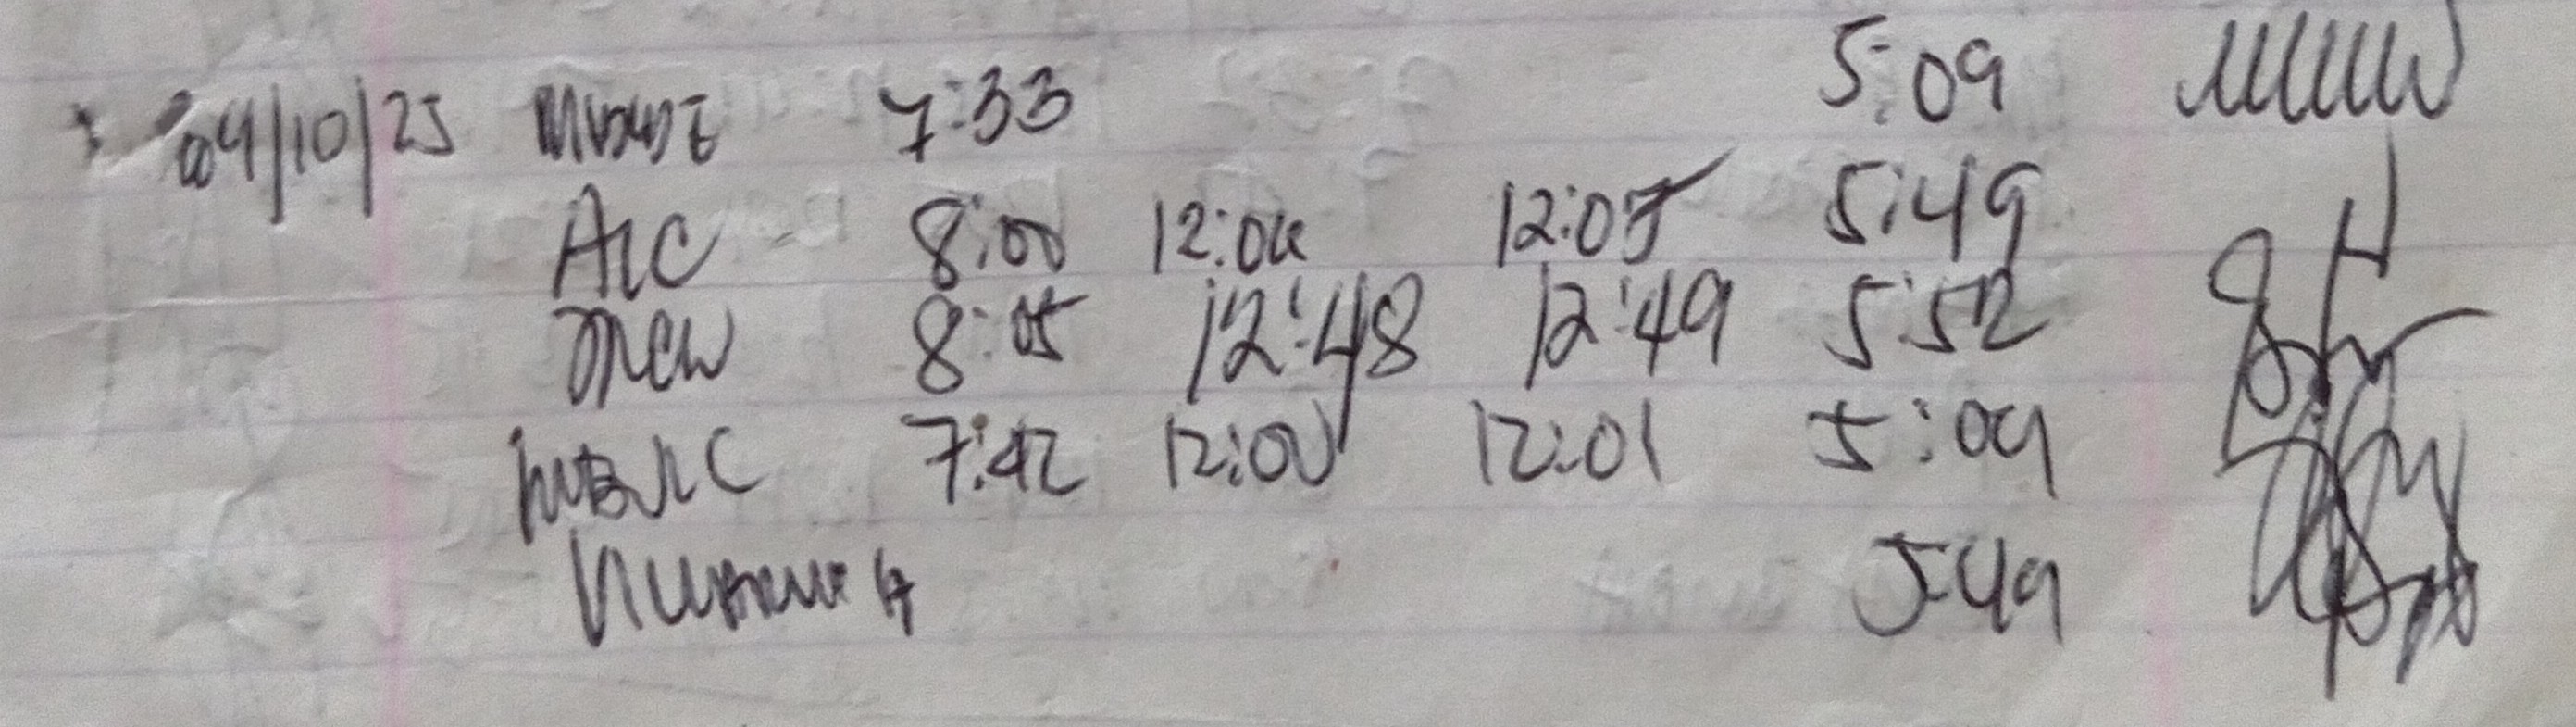 09/10/25 7:33 5:09
AIC 8:00 12:04 12:05 5:49
8:05 12:48 12:49 5:52
7:42 12:00 12:01 5:09
5:49